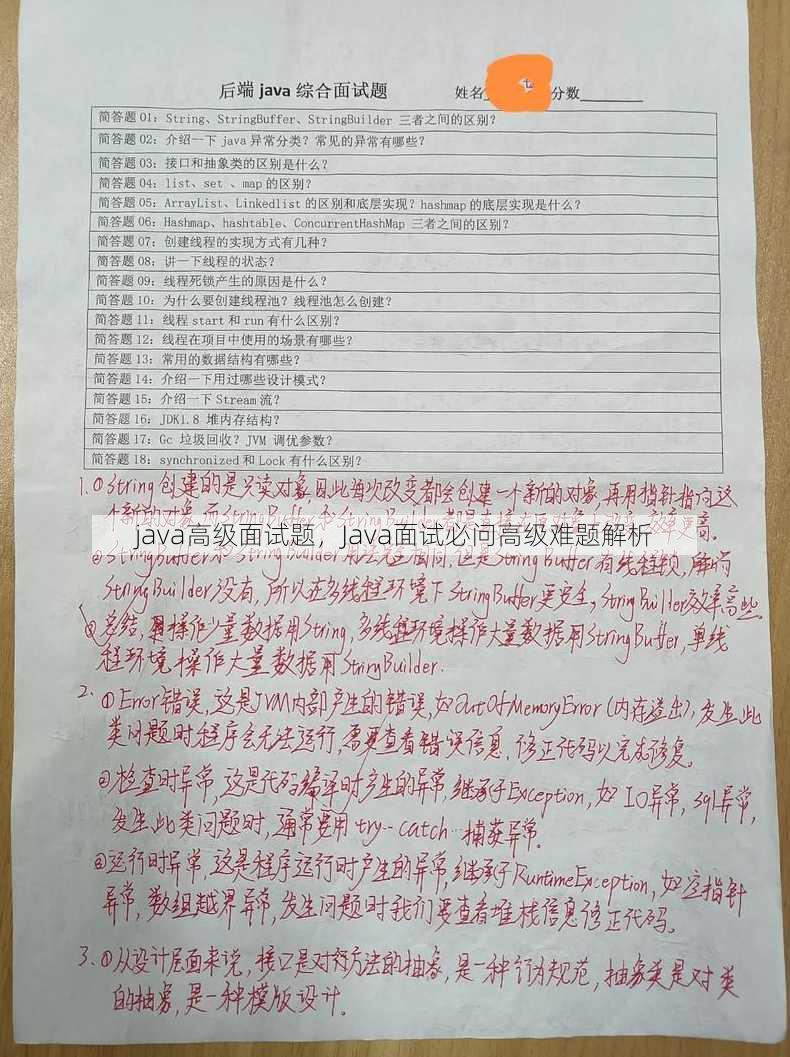 后端 java 综合面试题 姓名 分数
简答题 01：String、StringBuffer、StringBuilder 三者之间的区别？
简答题 02：介绍一下 java 异常分类？常见的异常有哪些？
简答题 03：接口和抽象类的区别是什么？
简答题 04：list、set 、map 的区别？
简答题 05：ArrayList、Linkedlist 的区别和底层实现？hashmap 的底层实现是什么？
简答题 06：Hashmap、hashtable、ConcurrentHashMap 三者之间的区别？
简答题 07：创建线程的实现方式有几种？
简答题 08：讲一下线程的状态？
简答题 09：线程死锁产生的原因是什么？
简答题 10：为什么要创建线程池？线程池怎么创建？
简答题 11：线程 start 和 run 有什么区别？
简答题 12：线程在项目中使用的场景有哪些？
简答题 13：常用的数据结构有哪些？
简答题 14：介绍一下用过哪些设计模式？
简答题 15：介绍一下 Stream 流？
简答题 16：JDK1.8 堆内存结构？
简答题 17：Gc 垃圾回收？JVM 调优参数？
简答题 18：synchronized 和 Lock 有什么区别？
1. ①String 创建的是只读对象因此每次改变都会创建一个新的对象，再用指针指向这
个新的对象，而StringBuffer和StringBuilder都是 更高。
java高级面试题，Java面试必问高级难题解析
②StringBuffer和StringBuilder用法完全相同，但是StringBuffer有线程锁，而
StringBuilder没有，所以在多线程环境下StringBuffer更安全，StringBuilder效率高些
③总结，操作少量数据用String，多线程环境操作大量数据用StringBuffer，单线
程环境操作大量数据用StringBuilder.
2. ①Error错误，这是JVM内部产生的错误，如OutOfMemoryError(内存溢出)，发生此
类问题时程序会无法运行，需要查看错误信息、修正代码以完成修复。
②检查时异常，这是代码编译时产生的异常，继承于Exception，如IO异常，sql异常，
发生此类问题时，通常要用try--catch…捕获异常。
③运行时异常，这是程序运行时产生的异常，继承于RuntimeException，如空指针
异常，数组越界异常，发生问题时我们要查看堆栈信息修正代码。
3. ①从设计层面来说，接口是对方法的抽象，是一种行为规范，抽象类是对类
的抽象，是一种模版设计。